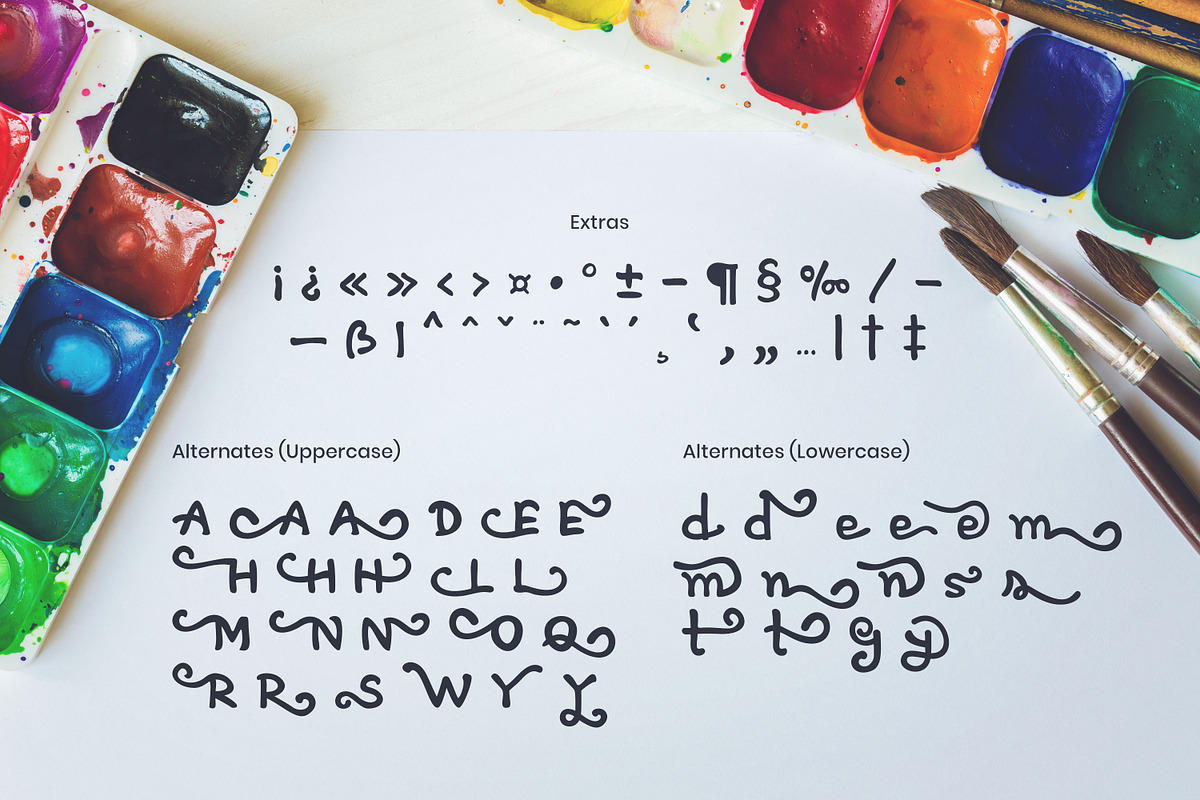 Extras
¡ ¿ « » ‹ › ¤ • ° ± – ¶ § ‰ ⁄ –
— ß | ^ ˆ ˇ ¨ ~ ` ´ ¸ ‘ ‚ „ … | † ‡
Alternates (Uppercase)
A A A D E E
H H H L L
M N N O Q
R R S W Y Y
Alternates (Lowercase)
d d e e e m
m n n s s
t t y y